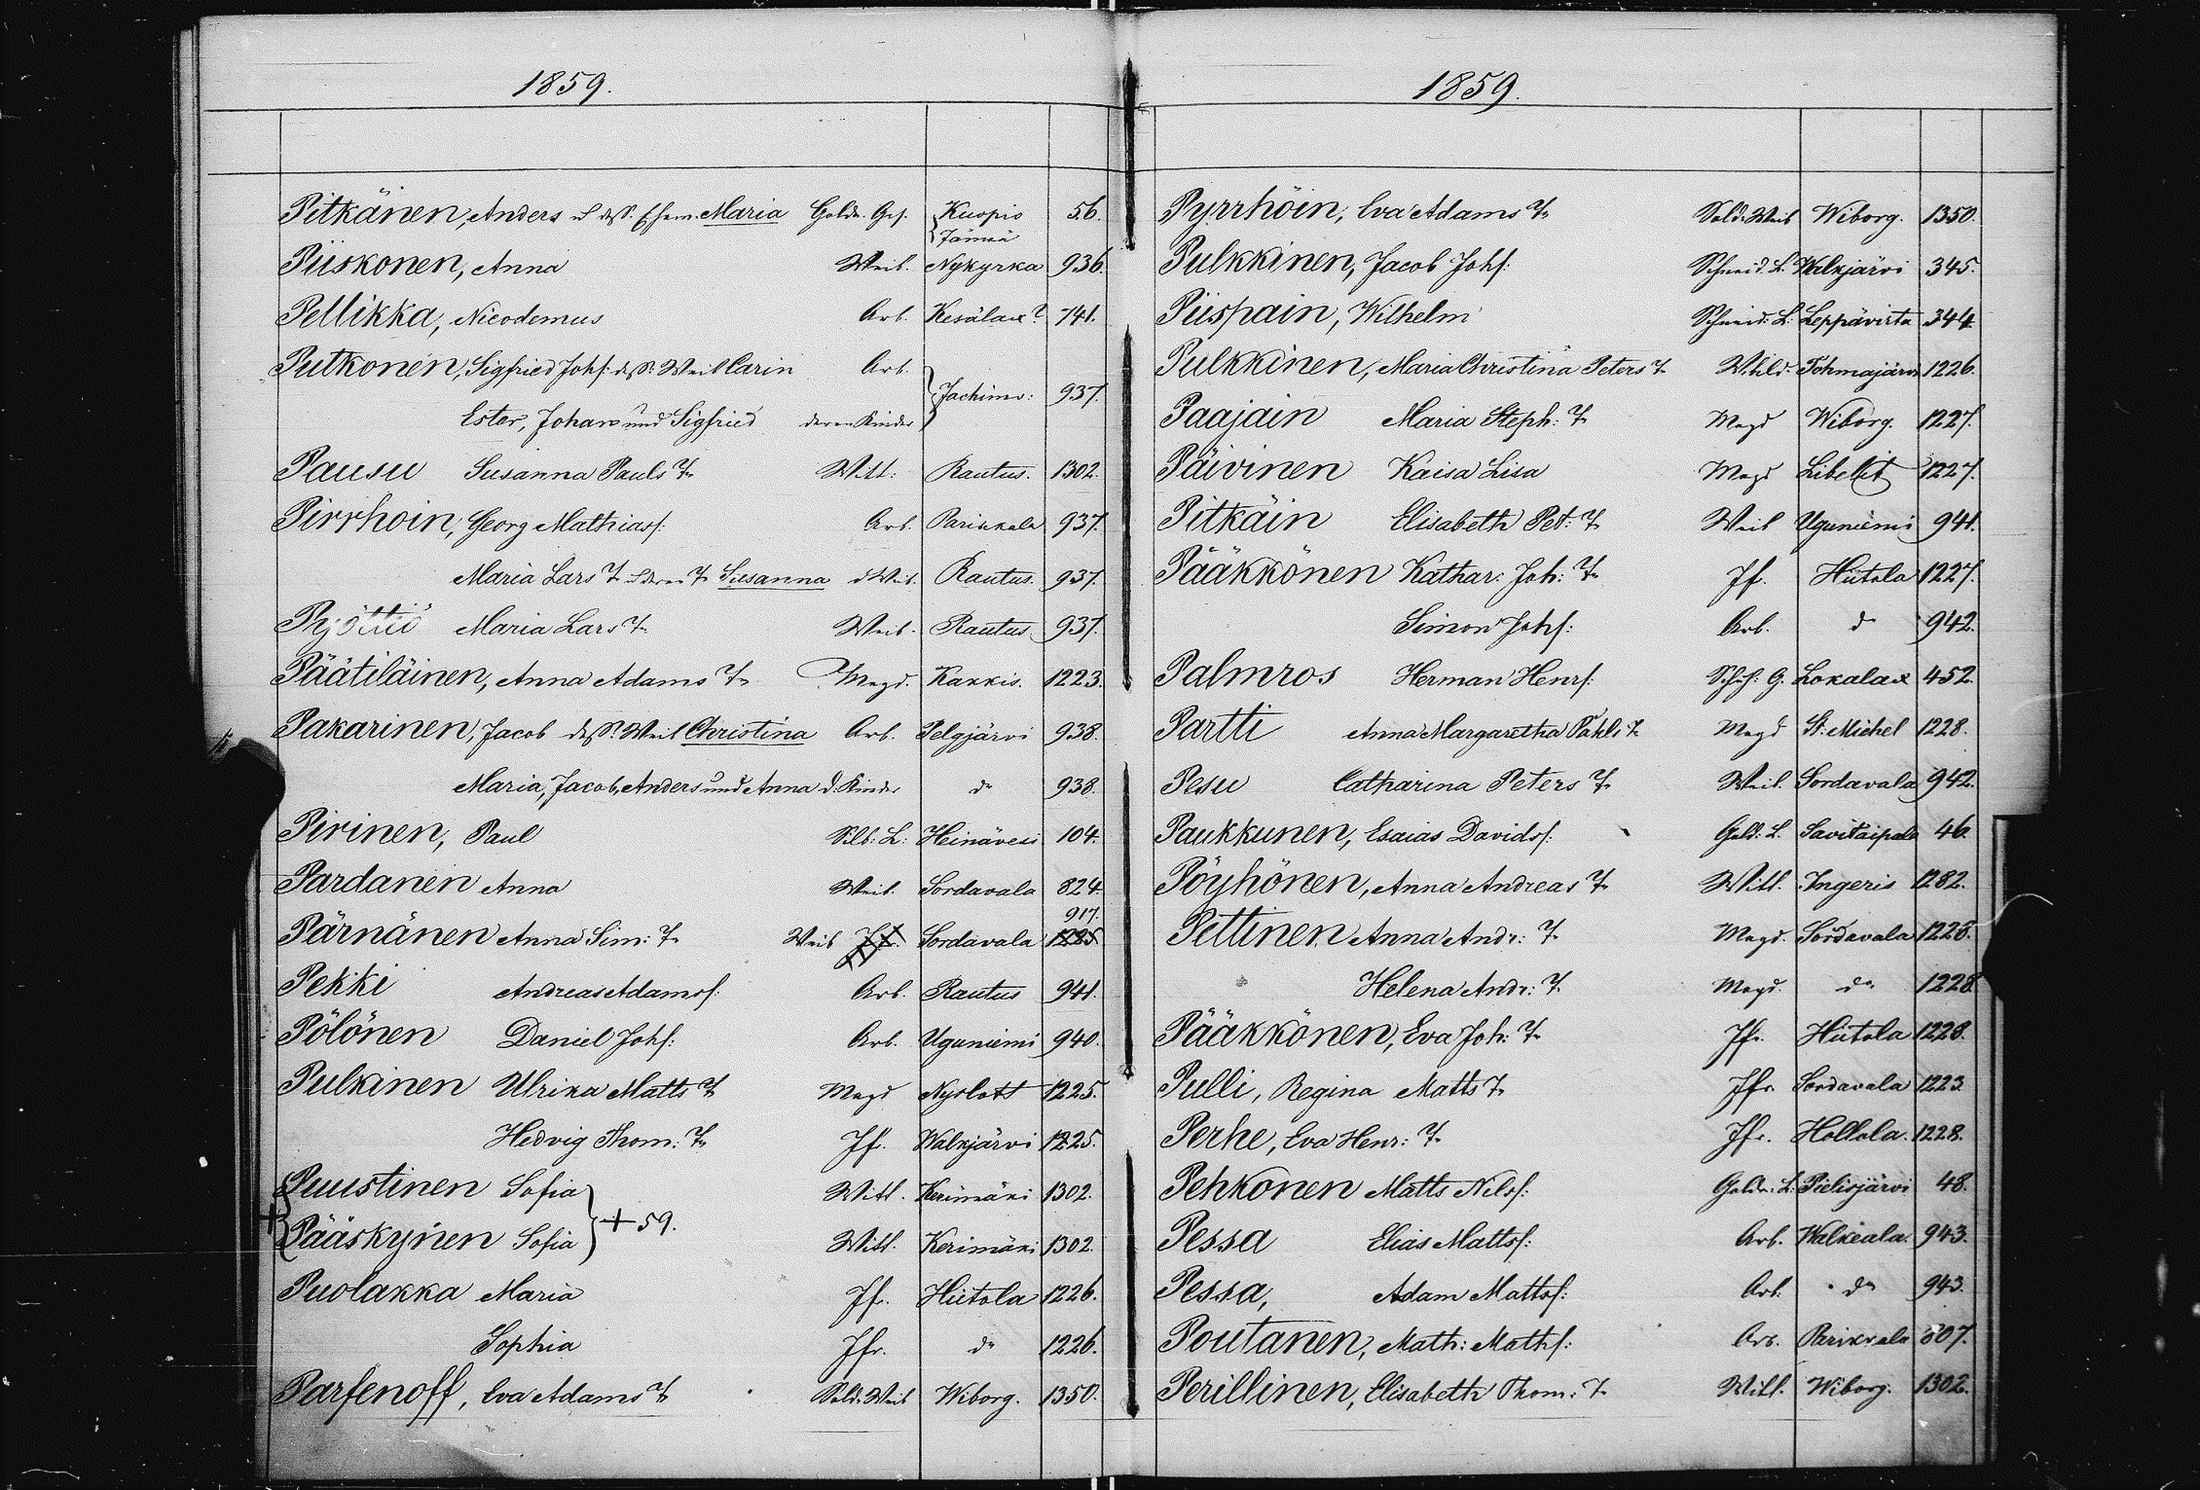 1859.
Pitkänen, Anders u deß. Ehem. Maria Goldr. Ges. Kuopio 56.
Jämsä
Piiskonen, Anna Weib. Nykyrka 936.
Pellikka, Nicodemus Arb. Kesälax? 741.
Putkonen, Sigfried Johs: deß: Weib Carin Arb.
Jachimv: 937.
Ester, Johan und Sigfried deren Kinder
Pausu Susanna Pauls T. Witt: Rautus. 1302.
Pirrhoin, Georg Mathiass: Arb. Parikkala 937.
Maria Lars T. u deren T. Susanna d Weib. Rautus. 937.
Pyöttiö Maria Lars T. Weib. Rautus 937.
Päätiläinen, Anna Adams T. Magd. Kakkis. 1223.
Pakarinen, Jacob deß: Weib Christina Arb. Pelgjärvi 938.
Maria, Jacob, Anders und Anna d. Kinder do 938.
Pirinen, Paul Silb: L: Heinävesi 104.
Pardanen Anna Weib. Sordavala 824.
917.
Pärnänen Anna Sim: T. Weib Jfr. Sordavala 1225
Pekki Andreas Adams: Arb. Rautus 941.
Pölönen Daniel Johs: Arb. Uguniemi 940.
Pulkinen Ulrika Matts T. Magd Nyslott 1225.
Hedvig Thom: T. Jfr. Walkjärvi 1225.
Puustinen Sofia Witt. Kerimäki 1302.
+ 59.
Pääskynen Sofia Witt. Kerimäki 1302.
Puolakka Maria Jfr. Hiitola 1226.
Sophia Jfr. do 1226.
Parfenoff, Eva Adams T. Sold: Weib Wiborg. 1350.
1859.
Pyrrhöin, Eva Adams T. Sold: Weib Wiborg. 1350.
Pulkkinen, Jacob Johs: Schneid. L. Walkjärvi 345.
Piispain, Wilhelm Schneid: L: Leppävirta 344.
Pulkkinen, Maria Christina Peters T. Tohmajärvi 1226.
Paajain Maria Steph: T. Magd Wiborg. 1227.
Päivinen Kaisa Lisa Magd Libelit 1227.
Pitkäin Elisabeth Pet: T. Weib Uguniemi 941.
Pääkkönen Kathar: Joh: T. Jfr. Hiitola 1227.
Simon Johs: Arb. do 942.
Palmros Herman Henrs: Schuh: G. Lokalax 452.
Partti Anna Margaretha Påhls T. Magd St: Michel 1228.
Pesu Catharina Peters T. Weib. Sordavala 942.
Paukkunen, Esaias Davids: Gold: L. Savitaipale 46.
Pöyhönen, Anna Andreas T. Witt. Ingeris 1282.
Pettinen Anna Andr: T. Magd. Sordavala 1228.
Helena Andr: T. Magd. do 1228
Pääkkönen, Eva Joh: T. Jfr. Hiitola 1228.
Pulli, Regina Matts T. Jfr. Sordavala 1223.
Perhe, Eva Henr: T. Jfr. Hollola. 1228.
Pehkonen Matts Nils: Goldr: L: Pielisjärvi 48.
Pessa Elias Matts: Arb. Walkeala. 943.
Pessa, Adam Matts: Arb. do 943.
Poutanen, Math: Maths: Arb. Parikkala 807.
Perillinen, Elisabeth Thom: T. Witt. Wiborg. 1302.